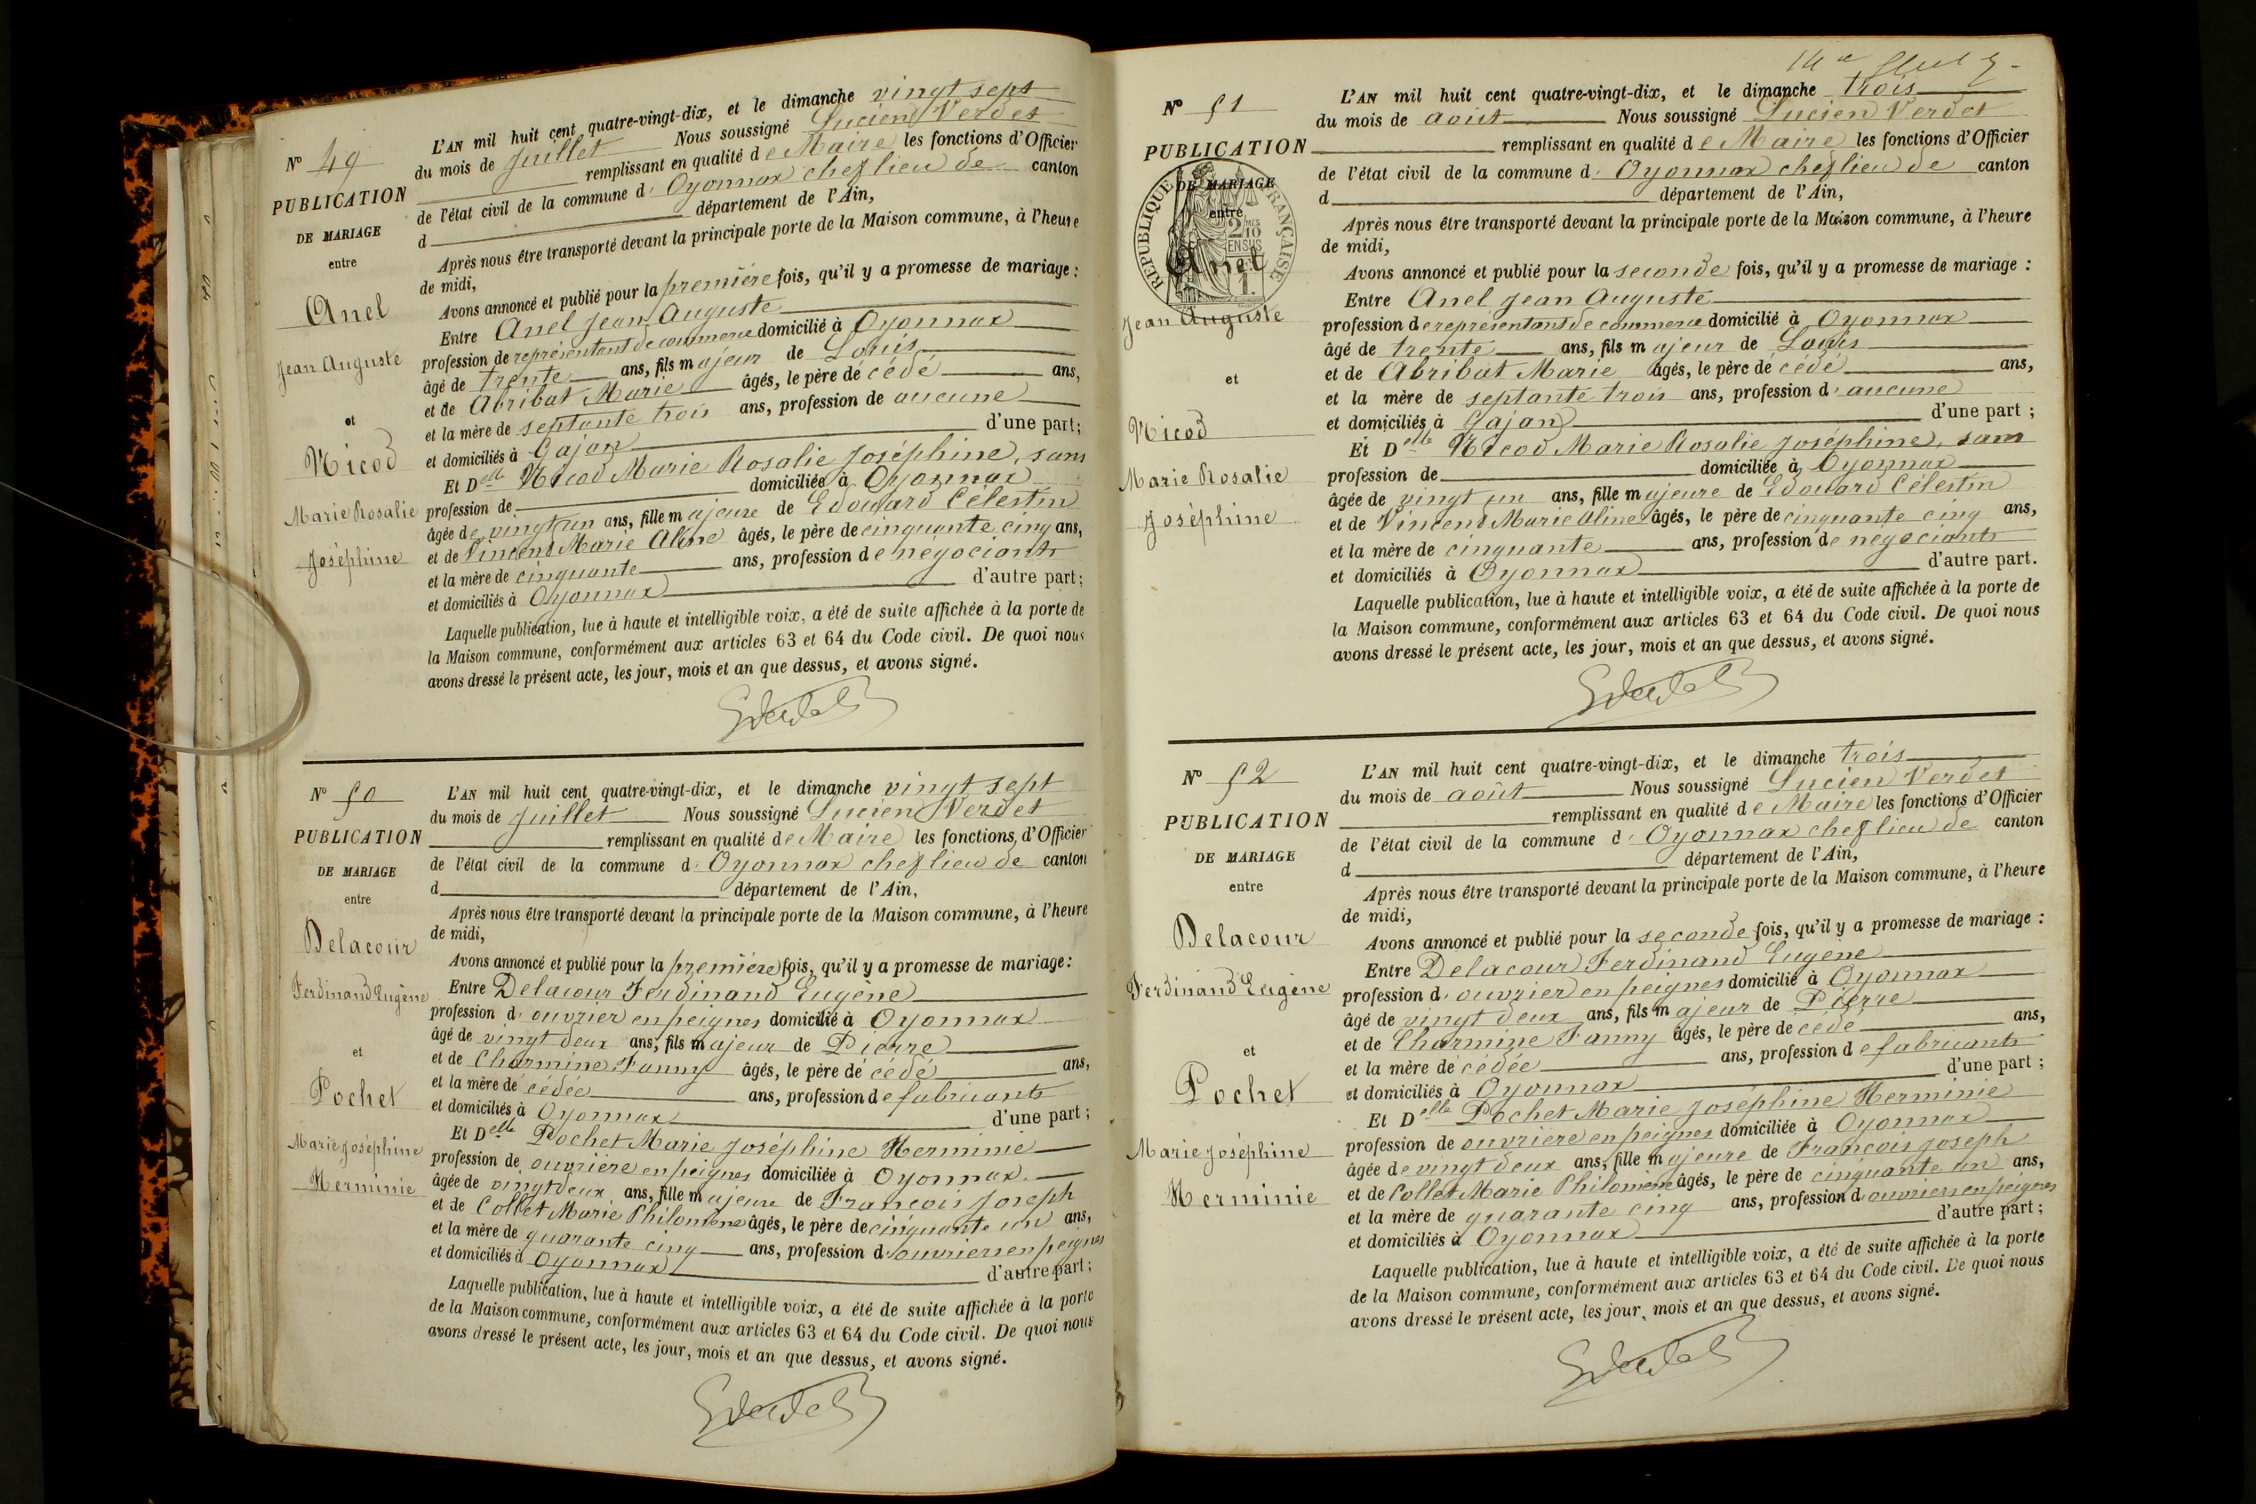 N° 49
PUBLICATION
DE MARIAGE
entre
Anel
Jean Auguste
et
Nicod
Marie Rosalie
Joséphine
L'AN mil huit cent quatre-vingt-dix, et le dimanche vingt sept
du mois de juillet Nous soussigné Lucien Verdet
remplissant en qualité de Maire les fonctions d'Officier
de l'état civil de la commune d'Oyonnax chef lieu de canton
d département de l'Ain,
Après nous être transporté devant la principale porte de la Maison commune, à l'heure
de midi,
Avons annoncé et publié pour la première fois, qu'il y a promesse de mariage :
Entre Anel Jean Auguste
profession de représentant de commerce domicilié à Oyonnax
âgé de trente ans, fils majeur de Louis
et de Abribat Marie âgés, le père décédé ans,
et la mère de septante trois ans, profession de aucune
et domiciliés à Gajan d'une part;
Et Delle Nicod Marie Rosalie Joséphine, sans
profession de domiciliée à Oyonnax
âgée de vingt un ans, fille majeure de Edouard Célestin
et de Vincent Marie Aline âgés, le père de cinquante cinq ans,
et la mère de cinquante ans, profession de négociants
et domiciliés à Oyonnax d'autre part;
Laquelle publication, lue à haute et intelligible voix, a été de suite affichée à la porte de
la Maison commune, conformément aux articles 63 et 64 du Code civil. De quoi nous
avons dressé le présent acte, les jour, mois et an que dessus, et avons signé.
N° 50
PUBLICATION
DE MARIAGE
entre
Delacour
Ferdinand Eugène
et
Pochet
Marie Joséphine
Herminie
L'AN mil huit cent quatre-vingt-dix, et le dimanche vingt sept
du mois de juillet Nous soussigné Lucien Verdet
remplissant en qualité de Maire les fonctions d'Officier
de l'état civil de la commune d'Oyonnax chef lieu de canton
d département de l'Ain,
Après nous être transporté devant la principale porte de la Maison commune, à l'heure
de midi,
Avons annoncé et publié pour la première fois, qu'il y a promesse de mariage :
Entre Delacour Ferdinand Eugène
profession d'ouvrier en peignes domicilié à Oyonnax
âgé de vingt deux ans, fils majeur de Pierre
et de Charmine Fanny âgés, le père décédé ans,
et la mère décédée ans, profession de fabricants
et domiciliés à Oyonnax d'une part ;
Et Delle Pochet Marie Joséphine Herminie
profession de ouvrière en peignes domiciliée à Oyonnax
âgée de vingt deux ans, fille majeure de François Joseph
et de Collet Marie Philomène âgés, le père de cinquante un ans,
et la mère de quarante cinq ans, profession d'ouvriers en peignes
et domiciliés à Oyonnax d'autre part ;
Laquelle publication, lue à haute et intelligible voix, a été de suite affichée à la porte
de la Maison commune, conformément aux articles 63 et 64 du Code civil. De quoi nous
avons dressé le présent acte, les jour, mois et an que dessus, et avons signé.
N° 51
PUBLICATION
DE MARIAGE
entre
RÉPUBLIQUE FRANÇAISE
Anel
Jean Auguste
et
Nicod
Marie Rosalie
Joséphine
L'AN mil huit cent quatre-vingt-dix, et le dimanche trois
du mois de août Nous soussigné Lucien Verdet
remplissant en qualité de Maire les fonctions d'Officier
de l'état civil de la commune d'Oyonnax chef lieu de canton
d département de l'Ain,
Après nous être transporté devant la principale porte de la Maison commune, à l'heure
de midi,
Avons annoncé et publié pour la seconde fois, qu'il y a promesse de mariage :
Entre Anel Jean Auguste
profession de représentant de commerce domicilié à Oyonnax
âgé de trente ans, fils majeur de Louis
et de Abribat Marie âgés, le père décédé ans,
et la mère de septante trois ans, profession d'aucune
et domiciliés à Gajan d'une part ;
Et Delle Nicod Marie Rosalie Joséphine, sans
profession de domiciliée à Oyonnax
âgée de vingt un ans, fille majeure de Edouard Célestin
et de Vincent Marie Aline âgés, le père de cinquante cinq ans,
et la mère de cinquante ans, profession de négociants
et domiciliés à Oyonnax d'autre part.
Laquelle publication, lue à haute et intelligible voix, a été de suite affichée à la porte de
la Maison commune, conformément aux articles 63 et 64 du Code civil. De quoi nous
avons dressé le présent acte, les jour, mois et an que dessus, et avons signé.
N° 52
PUBLICATION
DE MARIAGE
entre
Delacour
Ferdinand Eugène
et
Pochet
Marie Joséphine
Herminie
L'AN mil huit cent quatre-vingt-dix, et le dimanche trois
du mois de août Nous soussigné Lucien Verdet
remplissant en qualité de Maire les fonctions d'Officier
de l'état civil de la commune d'Oyonnax chef lieu de canton
d département de l'Ain,
Après nous être transporté devant la principale porte de la Maison commune, à l'heure
de midi,
Avons annoncé et publié pour la seconde fois, qu'il y a promesse de mariage :
Entre Delacour Ferdinand Eugène
profession d'ouvrier en peignes domicilié à Oyonnax
âgé de vingt deux ans, fils majeur de Pierre
et de Charmine Fanny âgés, le père décédé ans,
et la mère décédée ans, profession de fabricants
et domiciliés à Oyonnax d'une part ;
Et Delle Pochet Marie Joséphine Herminie
profession de ouvrière en peignes domiciliée à Oyonnax
âgée de vingt deux ans, fille majeure de François Joseph
et de Collet Marie Philomène âgés, le père de cinquante un ans,
et la mère de quarante cinq ans, profession d'ouvriers en peignes
et domiciliés à Oyonnax d'autre part ;
Laquelle publication, lue à haute et intelligible voix, a été de suite affichée à la porte
de la Maison commune, conformément aux articles 63 et 64 du Code civil. De quoi nous
avons dressé le présent acte, les jour, mois et an que dessus, et avons signé.